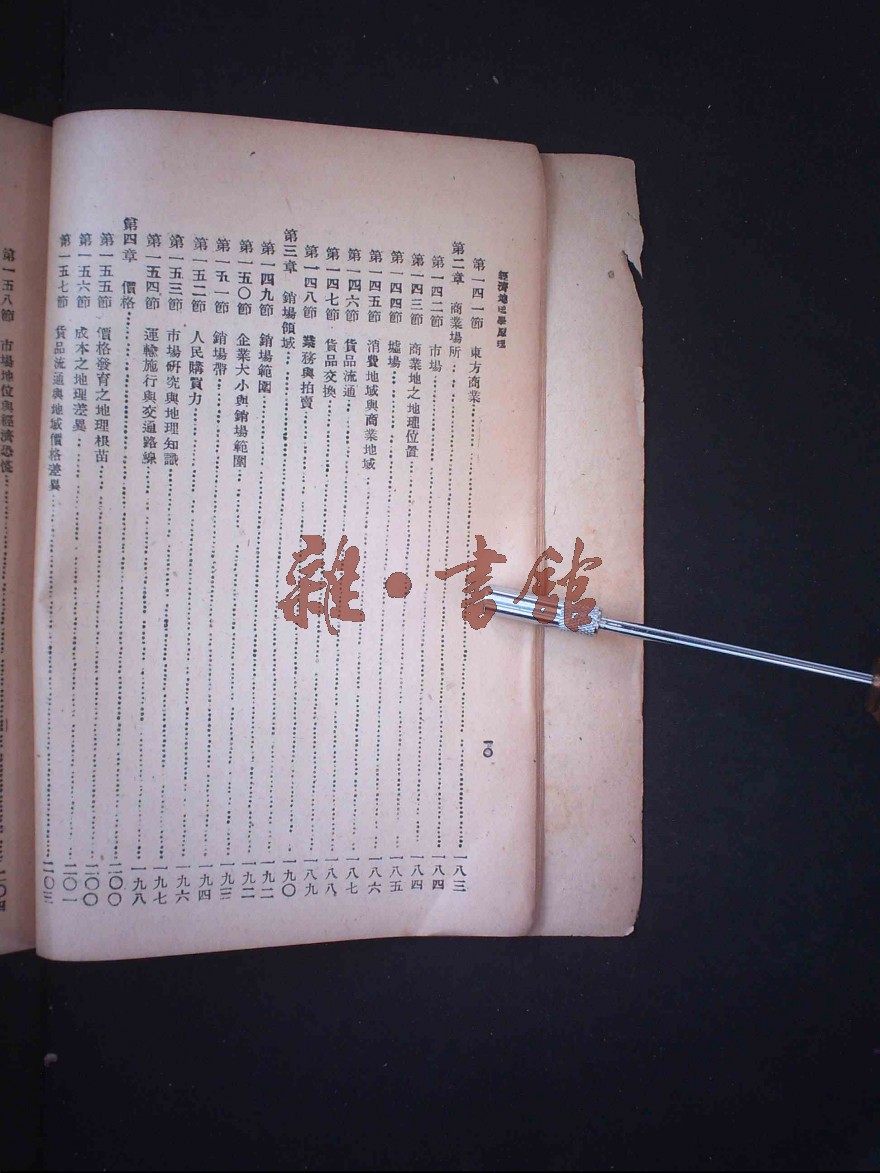 經濟地理學原理
第一四一節 東方商業 一八三
第二章 商業場所 一八四
第一四二節 市場 一八四
第一四三節 商業地之地理位置 一八四
第一四四節 墟場 一八五
第一四五節 消費地域與商業地域 一八六
第一四六節 貨品流通 一八七
第一四七節 貨品交換 一八八
第一四八節 業務與拍賣 一八九
第三章 銷場領域 一九〇
第一四九節 銷場範圍 一九二
第一五〇節 企業大小與銷場範圍 一九二
第一五一節 銷場帶 一九三
第一五二節 人民購買力 一九四
第一五三節 市場研究與地理知識 一九六
第一五四節 運輸施行與交通路線 一九七
第四章 價格 一九八
第一五五節 價格發育之地理根苗 二〇〇
第一五六節 成本之地理差異 二〇〇
第一五七節 貨品流通與地域價格差異 二〇一
二〇三
第一五八節 市場地位與經濟恐慌 二〇四
一〇
雜·書館